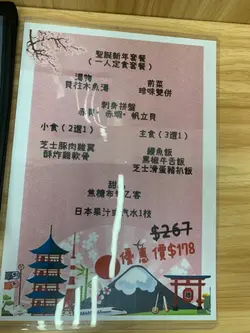 聖誕新年套餐
(一人定食套餐)
湯物 前菜
貝柱木魚湯 珍味雙併
刺身拼盤
赤蝦,帆立貝
小食(2選1) 主食(3選1)
芝士豚肉雞翼 鰻魚飯
酥炸雞軟骨 黑椒牛舌飯
芝士滑蛋豬扒飯
甜
焦糖布甸乙客
日本果汁 汽水1枝
$267
優惠價$178